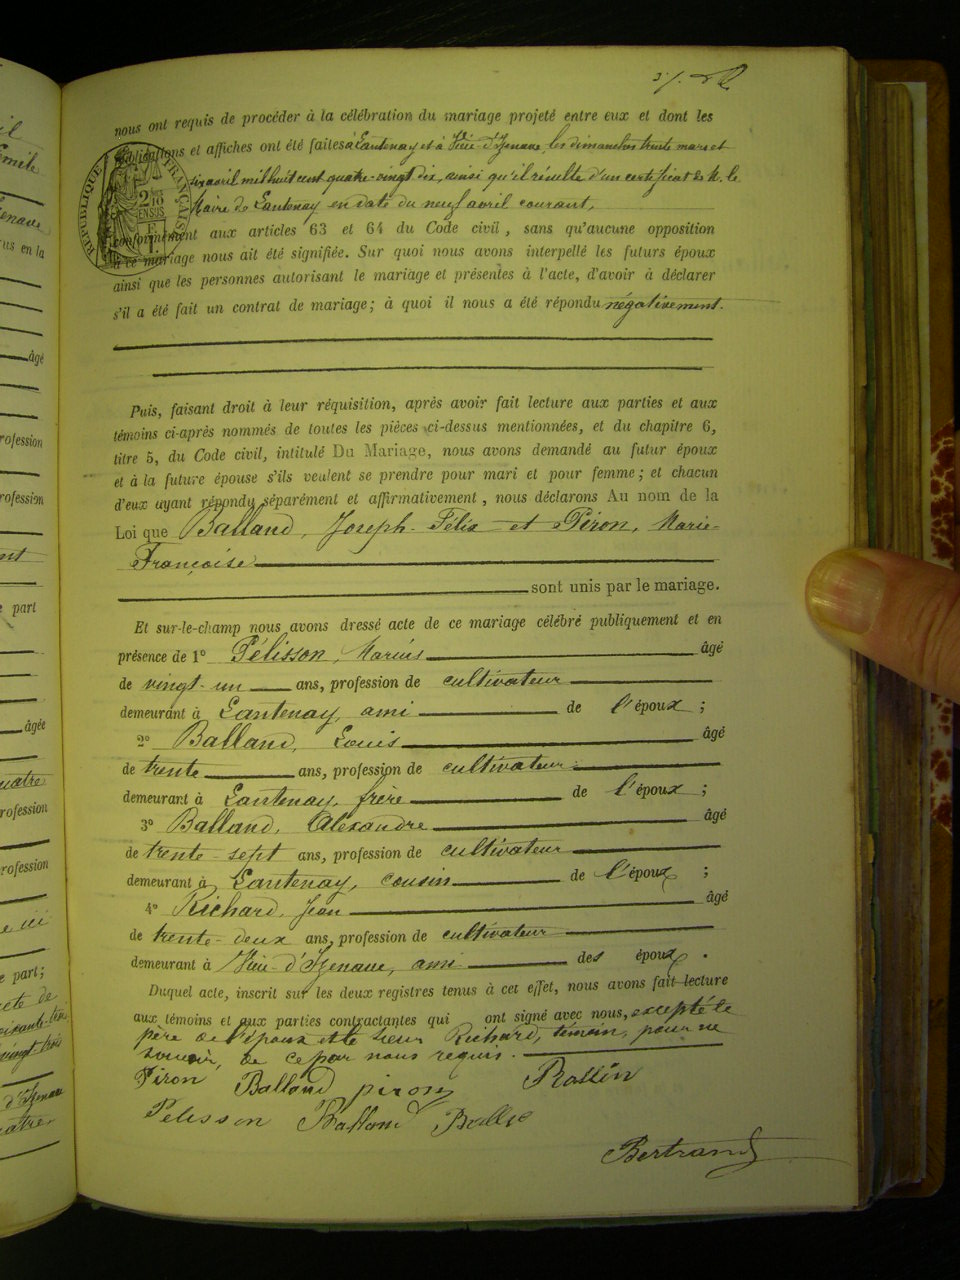 nous ont requis de procéder à la célébration du mariage projeté entre eux et dont les
publications et affiches ont été faites à Lantenay et à Vieu-d'Izenave, les dimanches trente mars et
six avril mil huit cent quatre-vingt dix, ainsi qu'il résulte d'un certificat de M. le
Maire de Lantenay en date du neuf avril courant,
conformément aux articles 63 et 64 du Code civil, sans qu'aucune opposition
à ce mariage nous ait été signifiée. Sur quoi nous avons interpellé les futurs époux
ainsi que les personnes autorisant le mariage et présentes à l'acte, d'avoir à déclarer
s'il a été fait un contrat de mariage; à quoi il nous a été répondu négativement.
RÉPUBLIQUE FRANÇAISE
Puis, faisant droit à leur réquisition, après avoir fait lecture aux parties et aux
témoins ci-après nommés de toutes les pièces ci-dessus mentionnées, et du chapitre 6,
titre 5, du Code civil, intitulé Du Mariage, nous avons demandé au futur époux
et à la future épouse s'ils veulent se prendre pour mari et pour femme; et chacun
d'eux ayant répondu séparément et affirmativement, nous déclarons Au nom de la
Loi que Balland, Joseph-Félix et Piron, Marie-
Françoise
sont unis par le mariage.
Et sur-le-champ nous avons dressé acte de ce mariage célébré publiquement et en
présence de 1° Pélisson, Marius âgé
de vingt-un ans, profession de cultivateur
demeurant à Lantenay, ami de l'époux ;
2° Balland, Louis âgé
de trente ans, profession de cultivateur
demeurant à Lantenay, frère de l'époux ;
3° Balland, Alexandre âgé
de trente-sept ans, profession de cultivateur
demeurant à Lantenay, cousin de l'époux ;
4° Richard, Jean âgé
de trente-deux ans, profession de cultivateur
demeurant à Vieu-d'Izenave, ami des époux.
Duquel acte, inscrit sur les deux registres tenus à cet effet, nous avons fait lecture
aux témoins et aux parties contractantes qui ont signé avec nous, excepté le
père de l'époux et le sieur Richard, témoin, pour ne
savoir, de ce par nous requis.
Piron Balland piron Rollin
Pelisson Balland
Bertrand